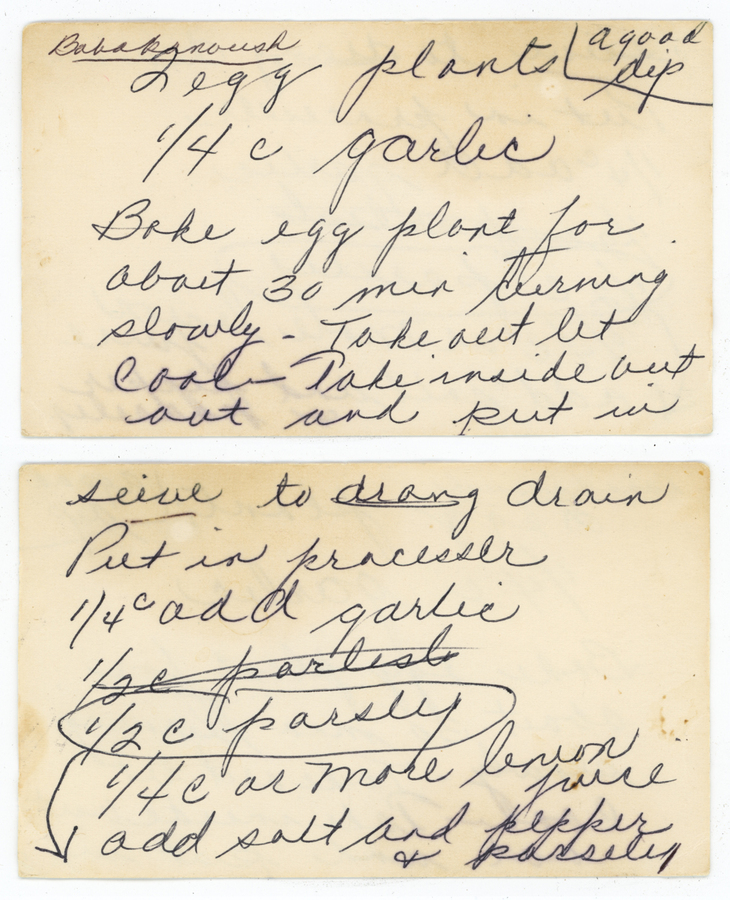 Babakanoush
a good
dip
2 egg plants
1/4 c garlic
Bake egg plant for
about 30 min turning
slowly - Take out let
Cool - Take inside out
out and put in
seive to drang drain
Put in processer
1/4 c add garlic
1/2 c
1/2 c parsley
1/4 c or more lemon
juice
add salt and pepper
& parseley